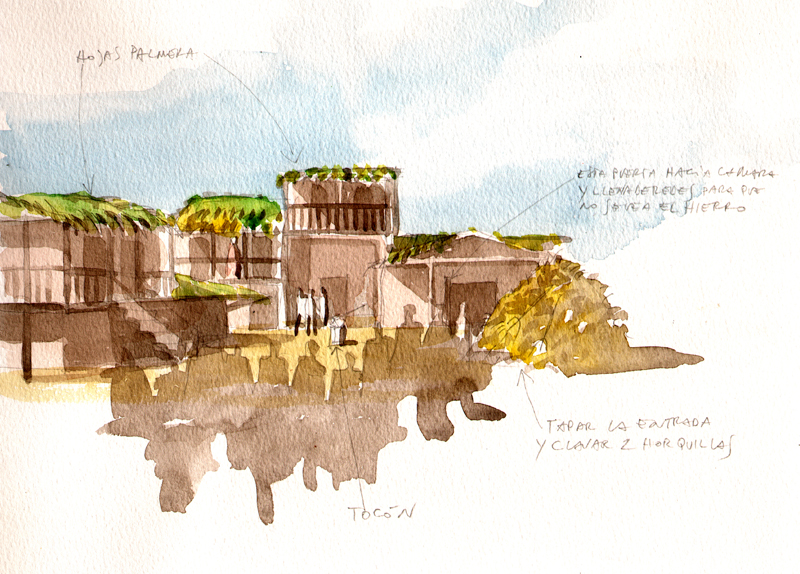 HOJAS PALMERA
ESTA PUERTA HACIA CAMARA
Y LLENA DE REDES PARA QUE
NO SE VEA EL HIERRO
TAPAR LA ENTRADA
Y CLAVAR 2 HORQUILLAS
TOCÓN